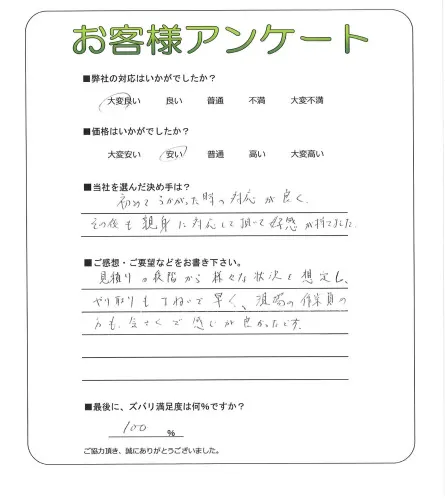 お客様アンケート
■弊社の対応はいかがでしたか?
大変良い 良い 普通 不満 大変不満
■価格はいかがでしたか?
大変安い 安い 普通 高い 大変高い
■当社を選んだ決め手は?
初めてうかがった時の対応が良く、
その後も親身に対応して頂いて好感が持てました。
■ご感想・ご要望などをお書き下さい。
見積りの段階から様々な状況を想定し、
やり取りも丁ねいで早く、現場の作業員の
方も、気さくで感じが良かったです。
■最後に、ズバリ満足度は何%ですか?
100 %
ご協力頂き、誠にありがとうございました。